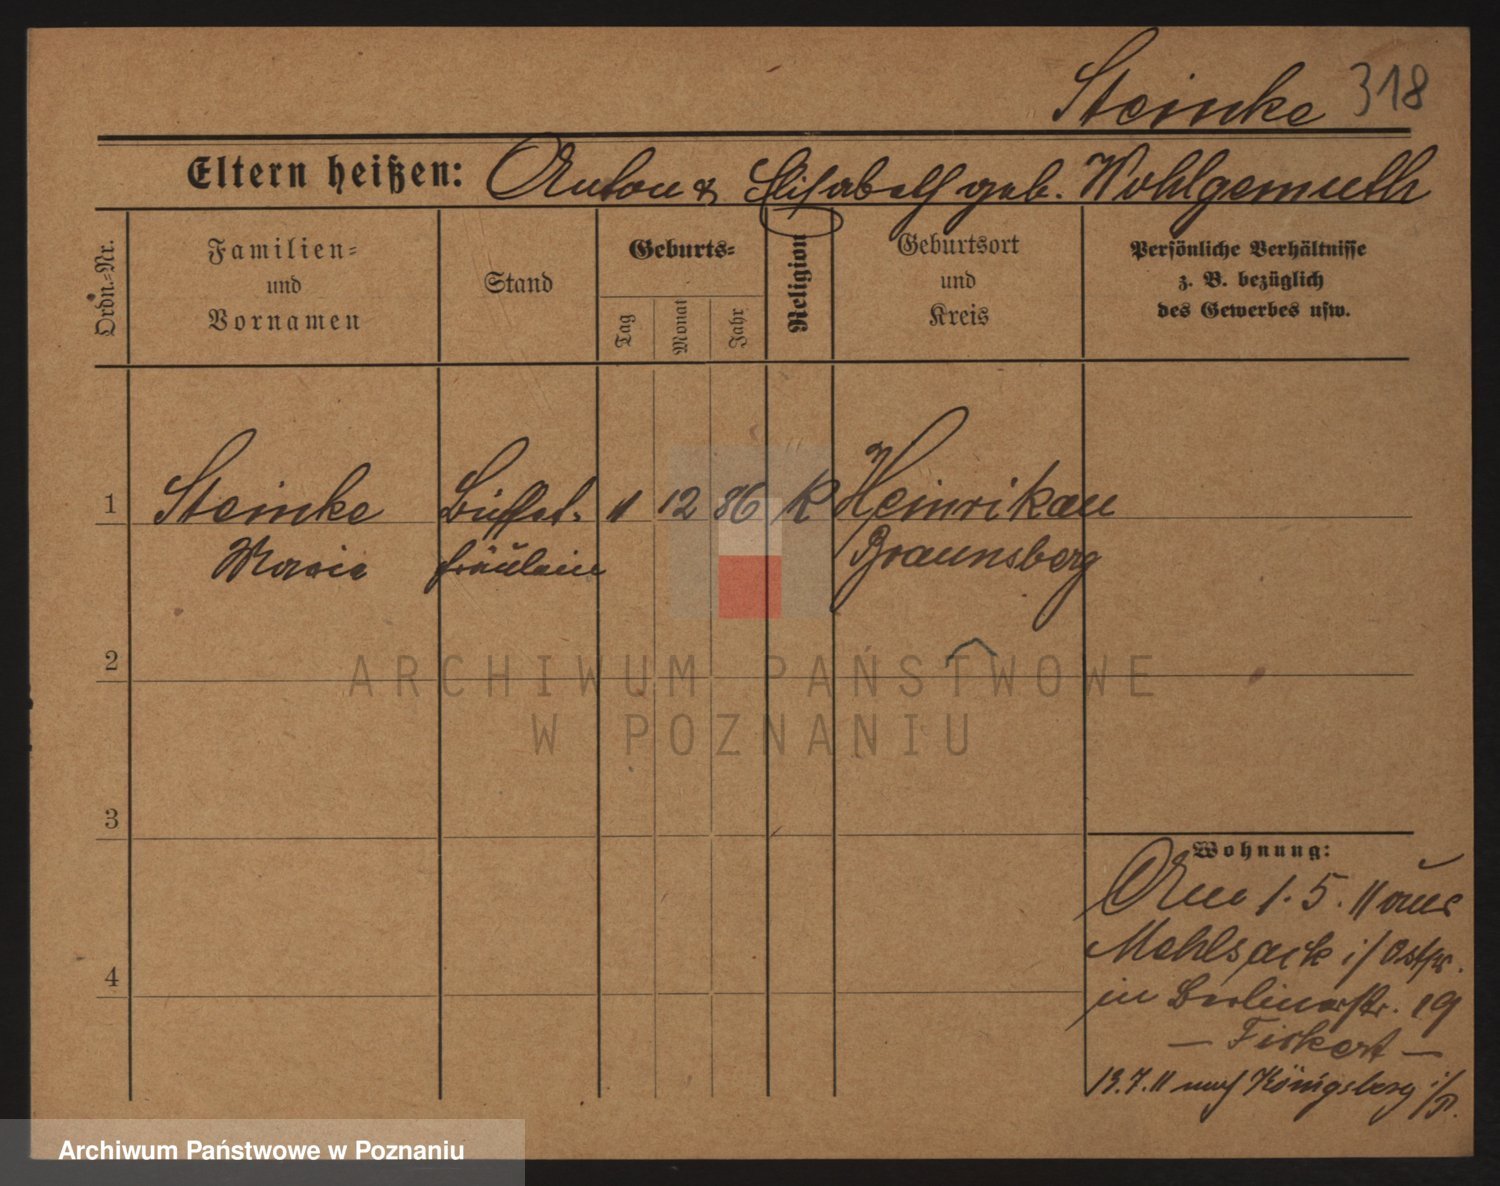 Steinke 318
Eltern heißen: Anton & Elisabeth geb. Wohlgemuth
Ordn.-Nr.
Familien- und Vornamen
Stand
Geburts-
Tag
Monat
Jahr
Religion
Geburtsort und Kreis
Persönliche Verhältnisse
z. B. bezüglich
des Gewerbes usw.
1 Steinke Büffet- 11 12 86 K Heinrikau
Marie fräulein Braunsberg
2
3
4
Wohnung:
Am 1.5.11 aus
Mehlsack i/Ostpr.
in Berlinerstr. 19
— Fiskert —
13.7.11 nach Königsberg i/P.
ARCHIWUM PAŃSTWOWE
W POZNANIU
Archiwum Państwowe w Poznaniu